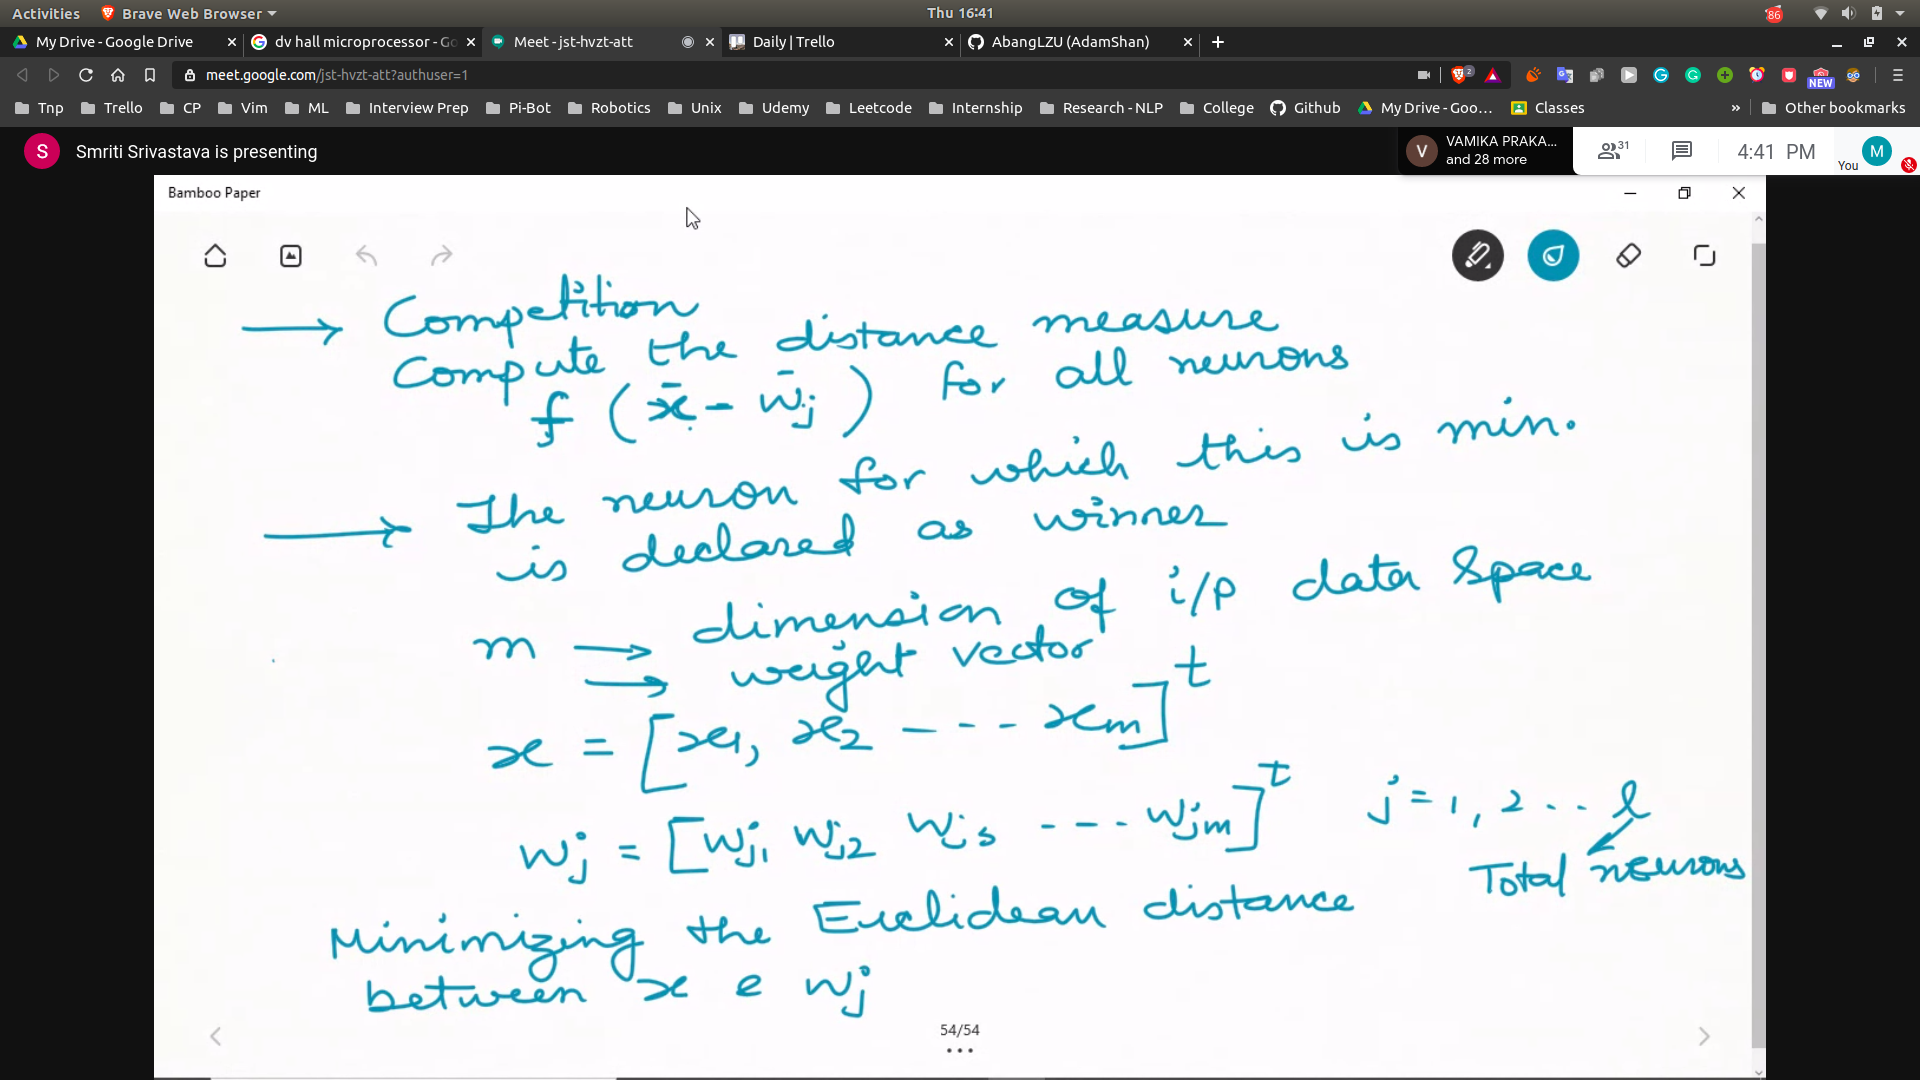 Activities Brave Web Browser Thu 16:41 86
My Drive - Google Drive dv hall microprocessor - Go Meet - jst-hvzt-att Daily | Trello AbangLZU (AdamShan)
meet.google.com/jst-hvzt-att?authuser=1 2 NEW
Tnp Trello CP Vim ML Interview Prep Pi-Bot Robotics Unix Udemy Leetcode Internship Research - NLP College Github My Drive - Goo... Classes » Other bookmarks
S Smriti Srivastava is presenting V VAMIKA PRAKA... and 28 more 31 4:41 PM You M
Bamboo Paper
→ Competition
Compute the distance measure
f (x̄ - w̄j) for all neurons
→ The neuron for which this is min.
is declared as winner
m → dimension of i/p data space
→ weight vector
x = [x1, x2 ---- xm]^t
wj = [wj1 wj2 wjs ---- wjm]^t j = 1, 2 .. l
Total neurons
Minimizing the Euclidean distance
between x e wj
54/54